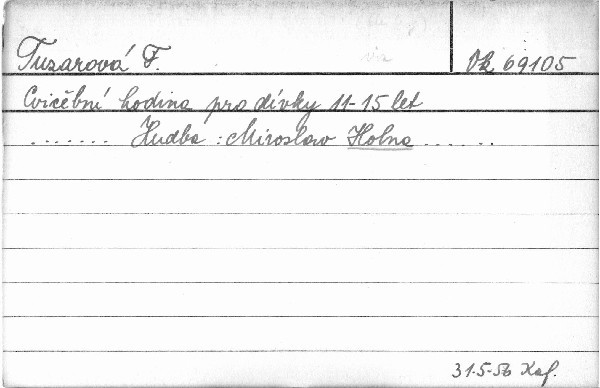 Tuzarová F. Vk 69105
Cvičební hodina pro dívky 11-15 let
....... Hudba : Miroslav Holna ......
31-5-56 Kaf.